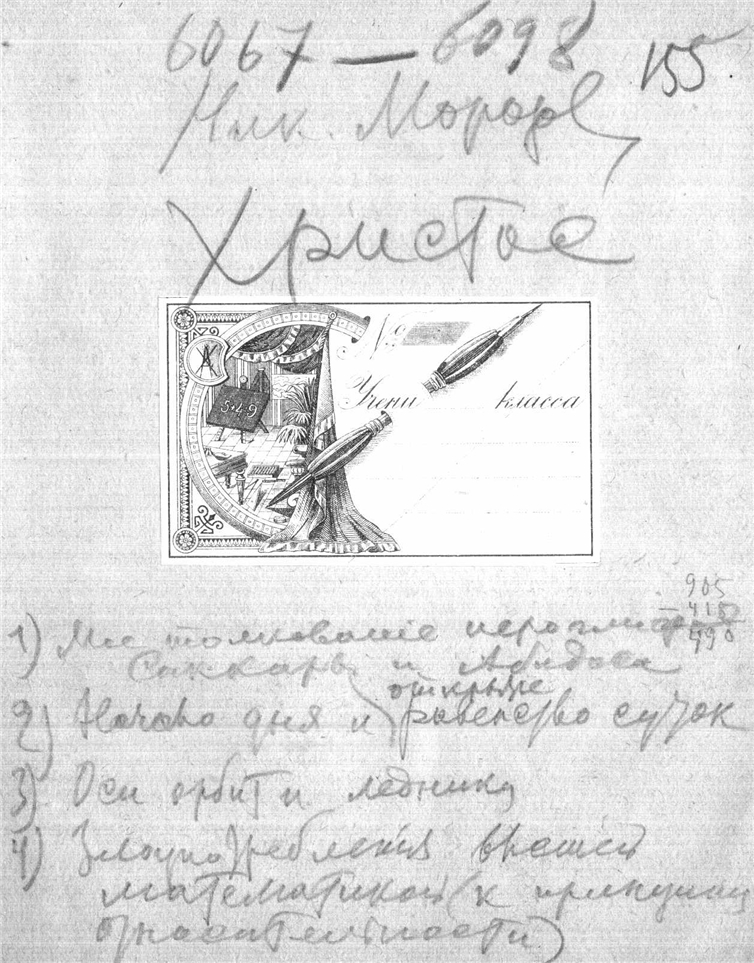 6067 — 6098 155
Ник. Морозов
Христос
№
5•49
Учени класса
905
415
490
1) Мое толкование иероглифов
Саккары и Абидоса
открытие
2) Начало дня и равенство суток
3) Оси орбит и ледники
4) Злоупотребления высшей
математикой (к принципу
относительности)